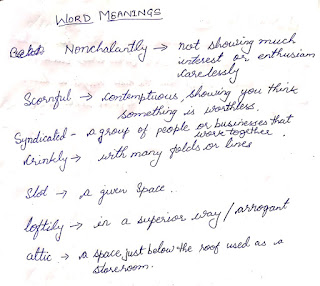 WORD MEANINGS
Nonchalantly → not showing much
interest or enthusiasm
carelessly
Scornful → contemptuous, showing you think
something is worthless.
Syndicated - a group of people or businesses that
work together.
Crinkly → with many folds or lines
Slot → a given space..
loftily → in a superior way / arrogant
attic → a space just below the roof used as a
storeroom.